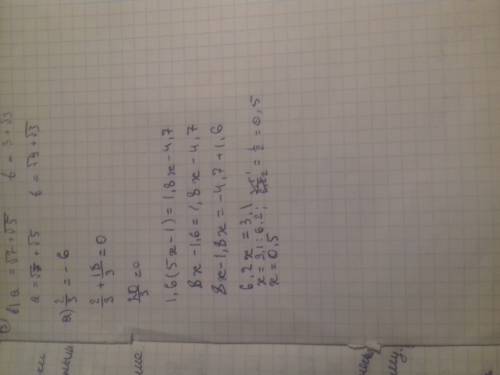 в) a = √7 + √5   b = 3 + √3
a = √7 + √5   b = √9 + √3
a) 2/3 = -6
2/3 + 18/3 = 0
20/3 = 0
1,6(5x-1) = 1,8x-4,7
8x-1,6 = 1,8x-4,7
8x-1,8x = -4,7+1,6
6,2x = 3,1
x = 3,1 : 6,2; = 1/2 = 0,5
x = 0,5